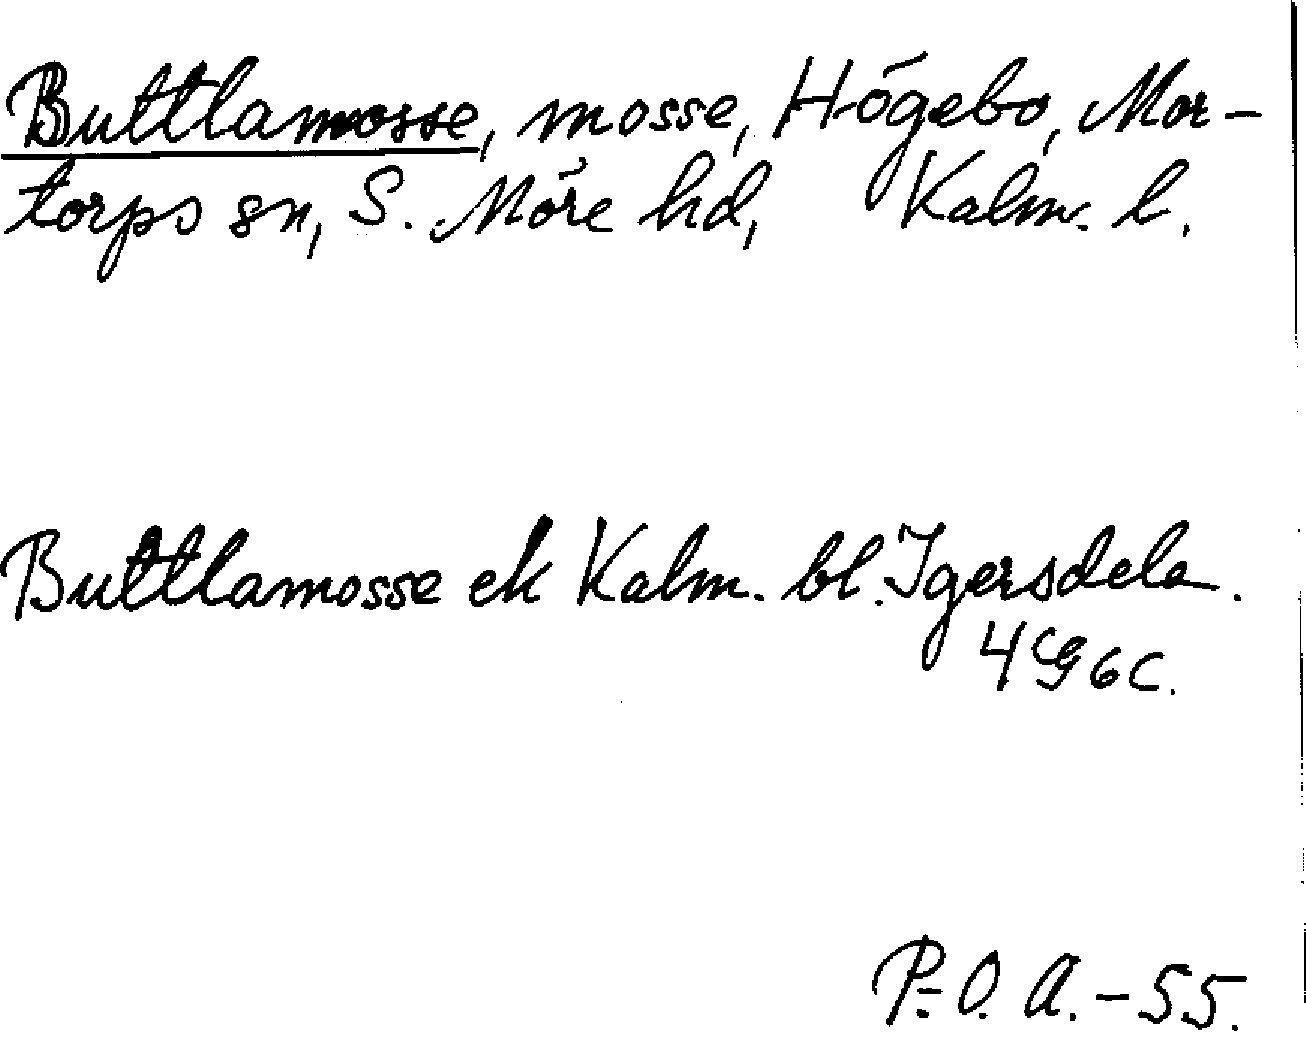 Buttlamosse, mosse, Högebo, Mor-
torps sn, S. Möre hd, Kalm. l.
Buttlamosse ek Kalm. bl. Igersdela.
4 G 6 c.
P.-O. A. - 55.